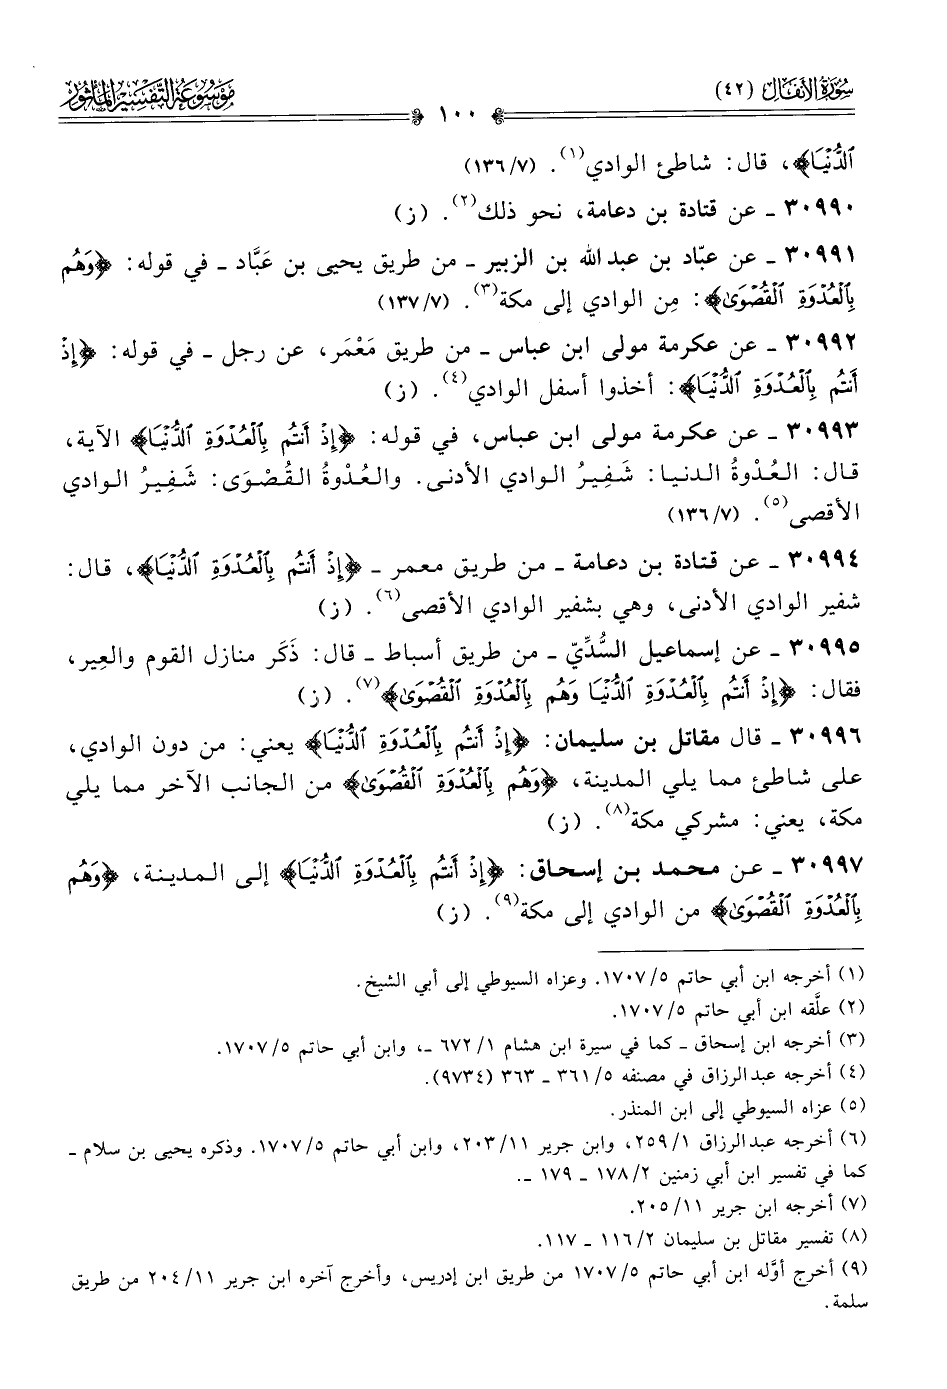 سُورَةُ الأَنفَال (٤٢)
مَوْسُوعَة التَّفْسِير المَأْثُور
١٠٠
الدُّنْيَا﴾، قال: شاطئ الوادي(١). (١٣٦/٧)
٣٠٩٩٠ ـ عن قتادة بن دعامة، نحو ذلك(٢). (ز)
٣٠٩٩١ ـ عن عبّاد بن عبد الله بن الزبير ـ من طريق يحيى بن عَبَّاد ـ في قوله: ﴿وَهُم
بِالْعُدْوَةِ الْقُصْوَىٰ﴾: مِن الوادي إلى مكة(٣). (١٣٧/٧)
٣٠٩٩٢ ـ عن عكرمة مولى ابن عباس ـ من طريق مَعْمَر، عن رجل ـ في قوله: ﴿إِذْ
أَنتُم بِالْعُدْوَةِ الدُّنْيَا﴾: أخذوا أسفل الوادي(٤). (ز)
٣٠٩٩٣ ـ عن عكرمة مولى ابن عباس، في قوله: ﴿إِذْ أَنتُم بِالْعُدْوَةِ الدُّنْيَا﴾ الآية،
قال: العُدْوةُ الدنيا: شَفِيرُ الوادي الأدنى. والعُدْوةُ القُصْوَى: شَفِيرُ الوادي
الأقصى(٥). (١٣٦/٧)
٣٠٩٩٤ ـ عن قتادة بن دعامة ـ من طريق معمر ـ ﴿إِذْ أَنتُم بِالْعُدْوَةِ الدُّنْيَا﴾، قال:
شفير الوادي الأدنى، وهي بشفير الوادي الأقصى(٦). (ز)
٣٠٩٩٥ ـ عن إسماعيل السُّدِّيّ ـ من طريق أسباط ـ قال: ذَكَر منازل القوم والعِير،
فقال: ﴿إِذْ أَنتُم بِالْعُدْوَةِ الدُّنْيَا وَهُم بِالْعُدْوَةِ الْقُصْوَىٰ﴾(٧). (ز)
٣٠٩٩٦ ـ قال مقاتل بن سليمان: ﴿إِذْ أَنتُم بِالْعُدْوَةِ الدُّنْيَا﴾ يعني: من دون الوادي،
على شاطئ مما يلي المدينة، ﴿وَهُم بِالْعُدْوَةِ الْقُصْوَىٰ﴾ من الجانب الآخر مما يلي
مكة، يعني: مشركي مكة(٨). (ز)
٣٠٩٩٧ ـ عن محمد بن إسحاق: ﴿إِذْ أَنتُم بِالْعُدْوَةِ الدُّنْيَا﴾ إلى المدينة، ﴿وَهُم
بِالْعُدْوَةِ الْقُصْوَىٰ﴾ من الوادي إلى مكة(٩). (ز)
(١) أخرجه ابن أبي حاتم ١٧٠٧/٥. وعزاه السيوطي إلى أبي الشيخ.
(٢) علَّقه ابن أبي حاتم ١٧٠٧/٥.
(٣) أخرجه ابن إسحاق ـ كما في سيرة ابن هشام ٦٧٢/١ ـ، وابن أبي حاتم ١٧٠٧/٥.
(٤) أخرجه عبدالرزاق في مصنفه ٣٦١/٥ ـ ٣٦٣ (٩٧٣٤).
(٥) عزاه السيوطي إلى ابن المنذر.
(٦) أخرجه عبدالرزاق ٢٥٩/١، وابن جرير ٢٠٣/١١، وابن أبي حاتم ١٧٠٧/٥. وذكره يحيى بن سلام ـ
كما في تفسير ابن أبي زمنين ١٧٨/٢ ـ ١٧٩ ـ.
(٧) أخرجه ابن جرير ٢٠٥/١١.
(٨) تفسير مقاتل بن سليمان ١١٦/٢ ـ ١١٧.
(٩) أخرج أوَّله ابن أبي حاتم ١٧٠٧/٥ من طريق ابن إدريس، وأخرج آخره ابن جرير ٢٠٤/١١ من طريق
سلمة.